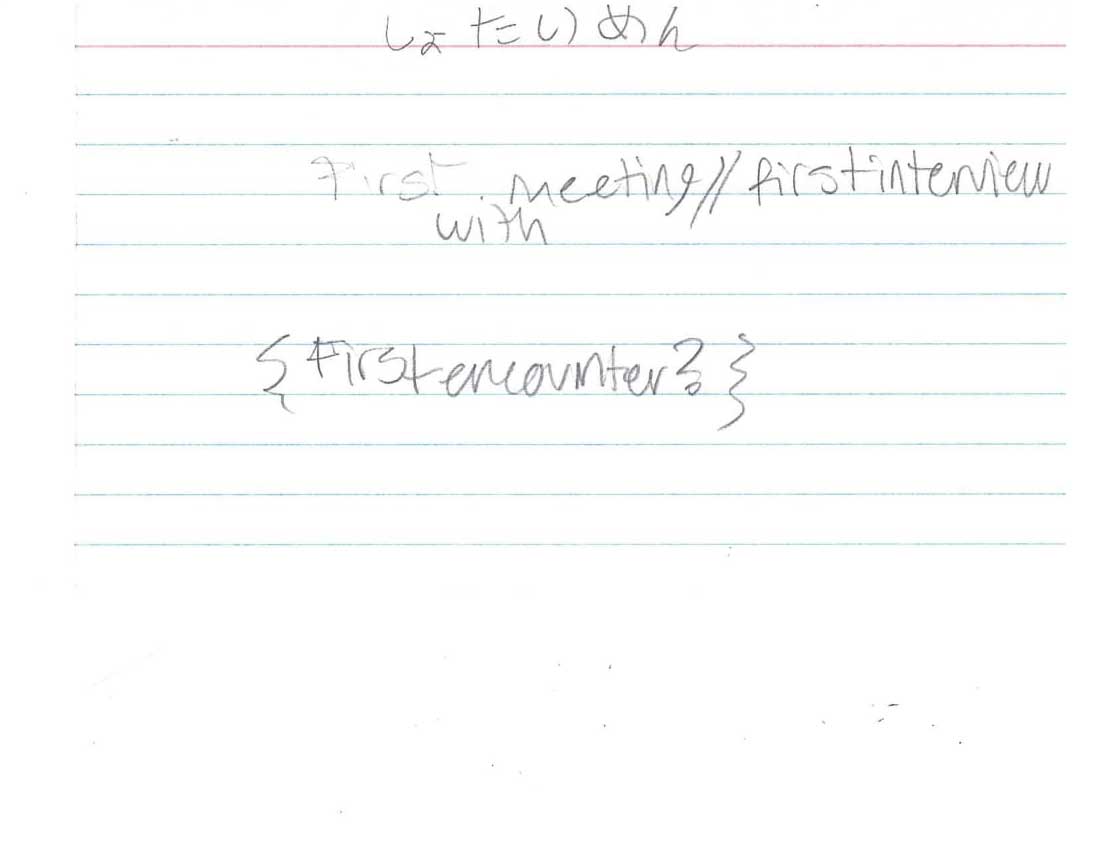 しょたいめん
First meeting // first interview
with
{First encounter?}